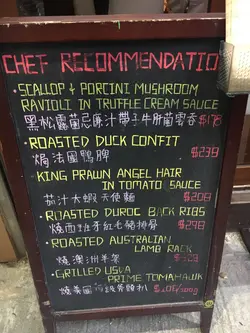 CHEF RECOMMENDATIO
• SCALLOP & PORCINI MUSHROOM
RAVIOLI IN TRUFFLE CREAM SAUCE
黑松露菌忌廉汁帶子牛肝菌雲吞 $178
• ROASTED DUCK CONFIT
焗法國鴨脾 $238
• KING PRAWN ANGEL HAIR
IN TOMATO SAUCE
茄汁大蝦天使麵 $208
• ROASTED DUROC BACK RIBS
燒西班牙紅毛豬排骨 $298
• ROASTED AUSTRALIAN
LAMB RACK
燒澳洲羊架 $328
• GRILLED USDA
PRIME TOMAHAWK
燒美國